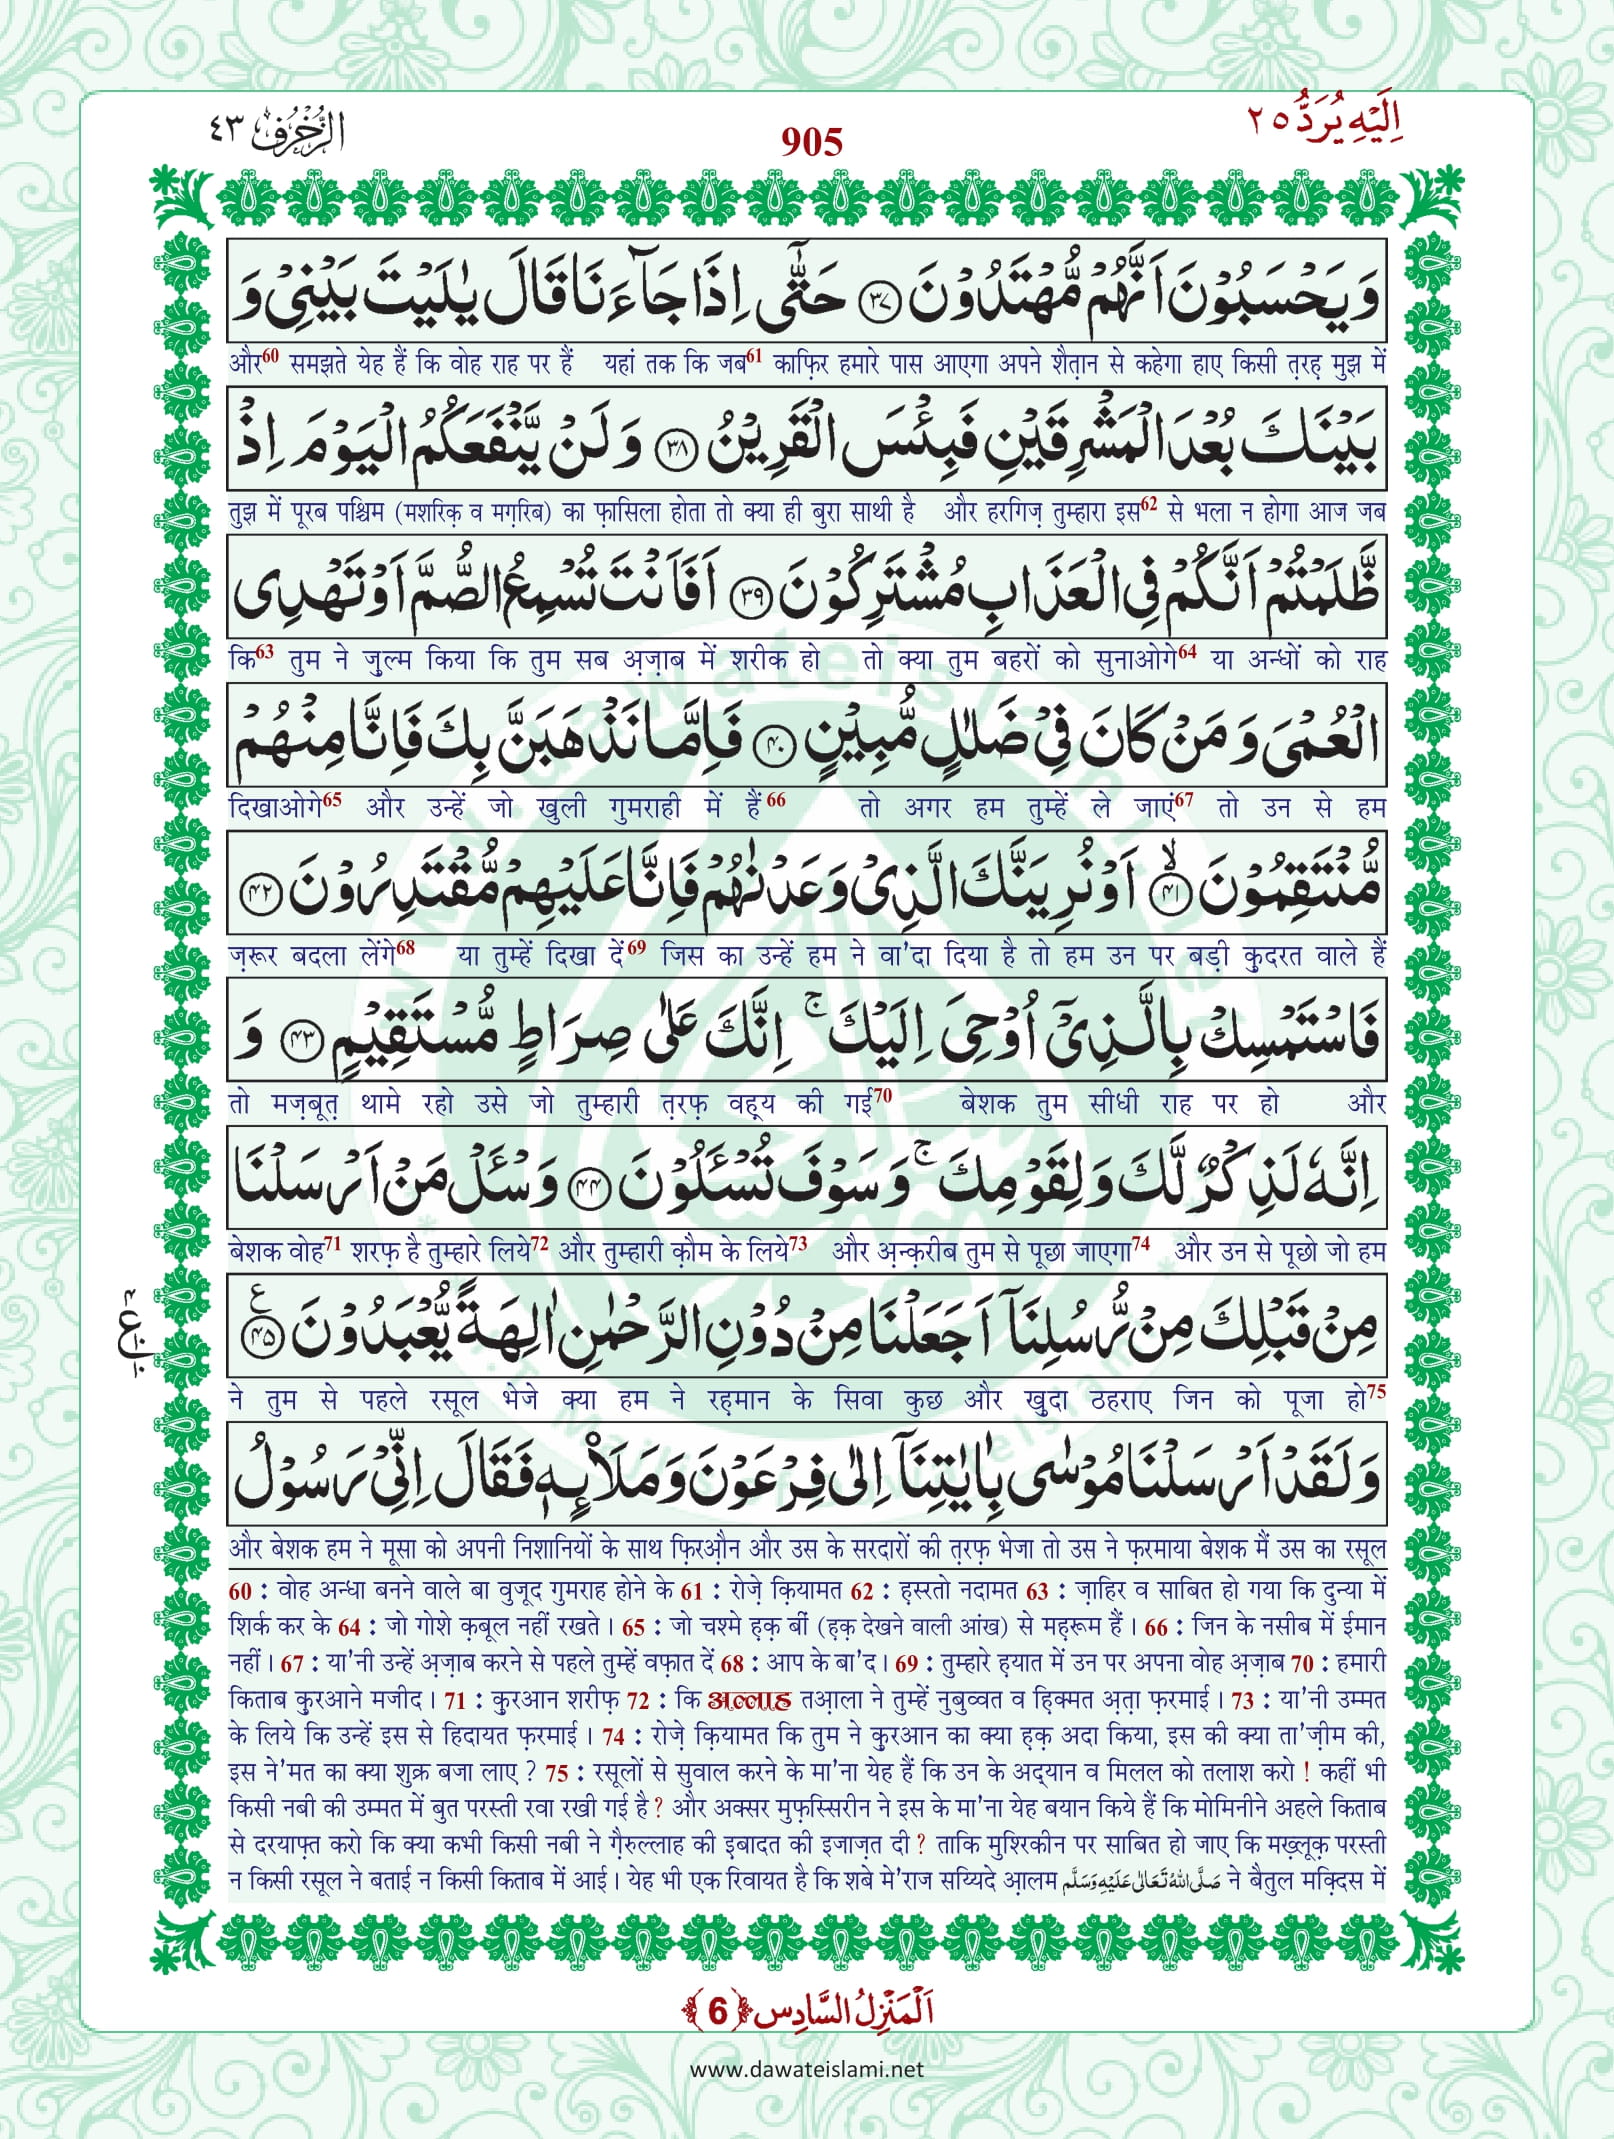 اِلَیْهِ یُرَدُّ ۲۵
905
الزُّخْرُف ٤٣
وَ یَحْسَبُوْنَ اَنَّهُمْ مُّهْتَدُوْنَ ﴿۳۷﴾ حَتّٰۤى اِذَا جَآءَنَا قَالَ یٰلَیْتَ بَیْنِیْ وَ
और60 समझते येह हैं कि वोह राह पर हैं यहां तक कि जब61 काफ़िर हमारे पास आएगा अपने शैत़ान से कहेगा हाए किसी त़रह़ मुझ में
بَیْنَكَ بُعْدَ الْمَشْرِقَیْنِ فَبِئْسَ الْقَرِیْنُ ﴿۳۸﴾ وَ لَنْ یَّنْفَعَكُمُ الْیَوْمَ اِذْ
तुझ में पूरब पश्चिम (मशरिक़ व मग़रिब) का फ़ासिला होता तो क्या ही बुरा साथी है और हरगिज़ तुम्हारा इस62 से भला न होगा आज जब
ظَّلَمْتُمْ اَنَّكُمْ فِی الْعَذَابِ مُشْتَرِكُوْنَ ﴿۳۹﴾ اَفَاَنْتَ تُسْمِعُ الصُّمَّ اَوْ تَهْدِی
कि63 तुम ने ज़ुल्म किया कि तुम सब अ़ज़ाब में शरीक हो तो क्या तुम बहरों को सुनाओगे64 या अन्धों को राह
الْعُمْیَ وَ مَنْ كَانَ فِیْ ضَلٰلٍ مُّبِیْنٍ ﴿۴۰﴾ فَاِمَّا نَذْهَبَنَّ بِكَ فَاِنَّا مِنْهُمْ
दिखाओगे65 और उन्हें जो खुली गुमराही में हैं66 तो अगर हम तुम्हें ले जाएं67 तो उन से हम
مُّنْتَقِمُوْنَ ﴿۴۱﴾ۙ اَوْ نُرِیَنَّكَ الَّذِیْ وَعَدْنٰهُمْ فَاِنَّا عَلَیْهِمْ مُّقْتَدِرُوْنَ ﴿۴۲﴾
ज़रूर बदला लेंगे68 या तुम्हें दिखा दें69 जिस का उन्हें हम ने वा'दा दिया है तो हम उन पर बड़ी क़ुदरत वाले हैं
فَاسْتَمْسِكْ بِالَّذِیْۤ اُوْحِیَ اِلَیْكَ ۚ اِنَّكَ عَلٰى صِرَاطٍ مُّسْتَقِیْمٍ ﴿۴۳﴾ وَ
तो मज़बूत़ थामे रहो उसे जो तुम्हारी त़रफ़ वह़्य की गई70 बेशक तुम सीधी राह पर हो और
اِنَّهٗ لَذِكْرٌ لَّكَ وَ لِقَوْمِكَ ۚ وَ سَوْفَ تُسْـَٔلُوْنَ ﴿۴۴﴾ وَسْـَٔلْ مَنْ اَرْسَلْنَا
बेशक वोह71 शरफ़ है तुम्हारे लिये72 और तुम्हारी क़ौम के लिये73 और अ़न्क़रीब तुम से पूछा जाएगा74 और उन से पूछो जो हम
مِنْ قَبْلِكَ مِنْ رُّسُلِنَاۤ اَجَعَلْنَا مِنْ دُوْنِ الرَّحْمٰنِ اٰلِهَةً یُّعْبَدُوْنَ ﴿۴۵﴾ ع
ने तुम से पहले रसूल भेजे क्या हम ने रह़मान के सिवा कुछ और ख़ुदा ठहराए जिन को पूजा हो75
وَ لَقَدْ اَرْسَلْنَا مُوْسٰى بِاٰیٰتِنَاۤ اِلٰى فِرْعَوْنَ وَ مَلَاۡىِٕهٖ فَقَالَ اِنِّیْ رَسُوْلُ
और बेशक हम ने मूसा को अपनी निशानियों के साथ फ़िरऔ़न और उस के सरदारों की त़रफ़ भेजा तो उस ने फ़रमाया बेशक मैं उस का रसूल
60 : वोह अन्धा बनने वाले बा वुजूद गुमराह होने के 61 : रोज़े क़ियामत 62 : ह़स्रतो नदामत 63 : ज़ाहिर व साबित हो गया कि दुन्या में
शिर्क कर के 64 : जो गोशे क़बूल नहीं रखते । 65 : जो चश्मे ह़क़ बीं (ह़क़ देखने वाली आंख) से मह़रूम हैं । 66 : जिन के नसीब में ईमान
नहीं । 67 : या'नी उन्हें अ़ज़ाब करने से पहले तुम्हें वफ़ात दें 68 : आप के बा'द । 69 : तुम्हारे ह़यात में उन पर अपना वोह अ़ज़ाब 70 : हमारी
किताब क़ुरआने मजीद । 71 : क़ुरआन शरीफ़ 72 : कि अल्लाह तआ़ला ने तुम्हें नुबुव्वत व ह़िक्मत अ़त़ा फ़रमाई । 73 : या'नी उम्मत
के लिये कि उन्हें इस से हिदायत फ़रमाई । 74 : रोज़े क़ियामत कि तुम ने क़ुरआन का क्या ह़क़ अदा किया, इस की क्या ता'ज़ीम की,
इस ने'मत का क्या शुक्र बजा लाए ? 75 : रसूलों से सुवाल करने के मा'ना येह हैं कि उन के अद्यान व मिलल को तलाश करो ! कहीं भी
किसी नबी की उम्मत में बुत परस्ती रवा रखी गई है ? और अक्सर मुफ़स्सिरीन ने इस के मा'ना येह बयान किये हैं कि मोमिनीने अहले किताब
से दरयाफ़्त करो कि क्या कभी किसी नबी ने ग़ैरुल्लाह की इ़बादत की इजाज़त दी ? ताकि मुश्रिकीन पर साबित हो जाए कि मख़्लूक़ परस्ती
न किसी रसूल ने बताई न किसी किताब में आई । येह भी एक रिवायत है कि शबे मे'राज सय्यिदे आ़लम صَلَّى اللّٰهُ تَعَالٰى عَلَیْهِ وَسَلَّم ने बैतुल मक़्दिस में
اَلْمَنْزِلُ السَّادِس ﴿6﴾
www.dawateislami.net